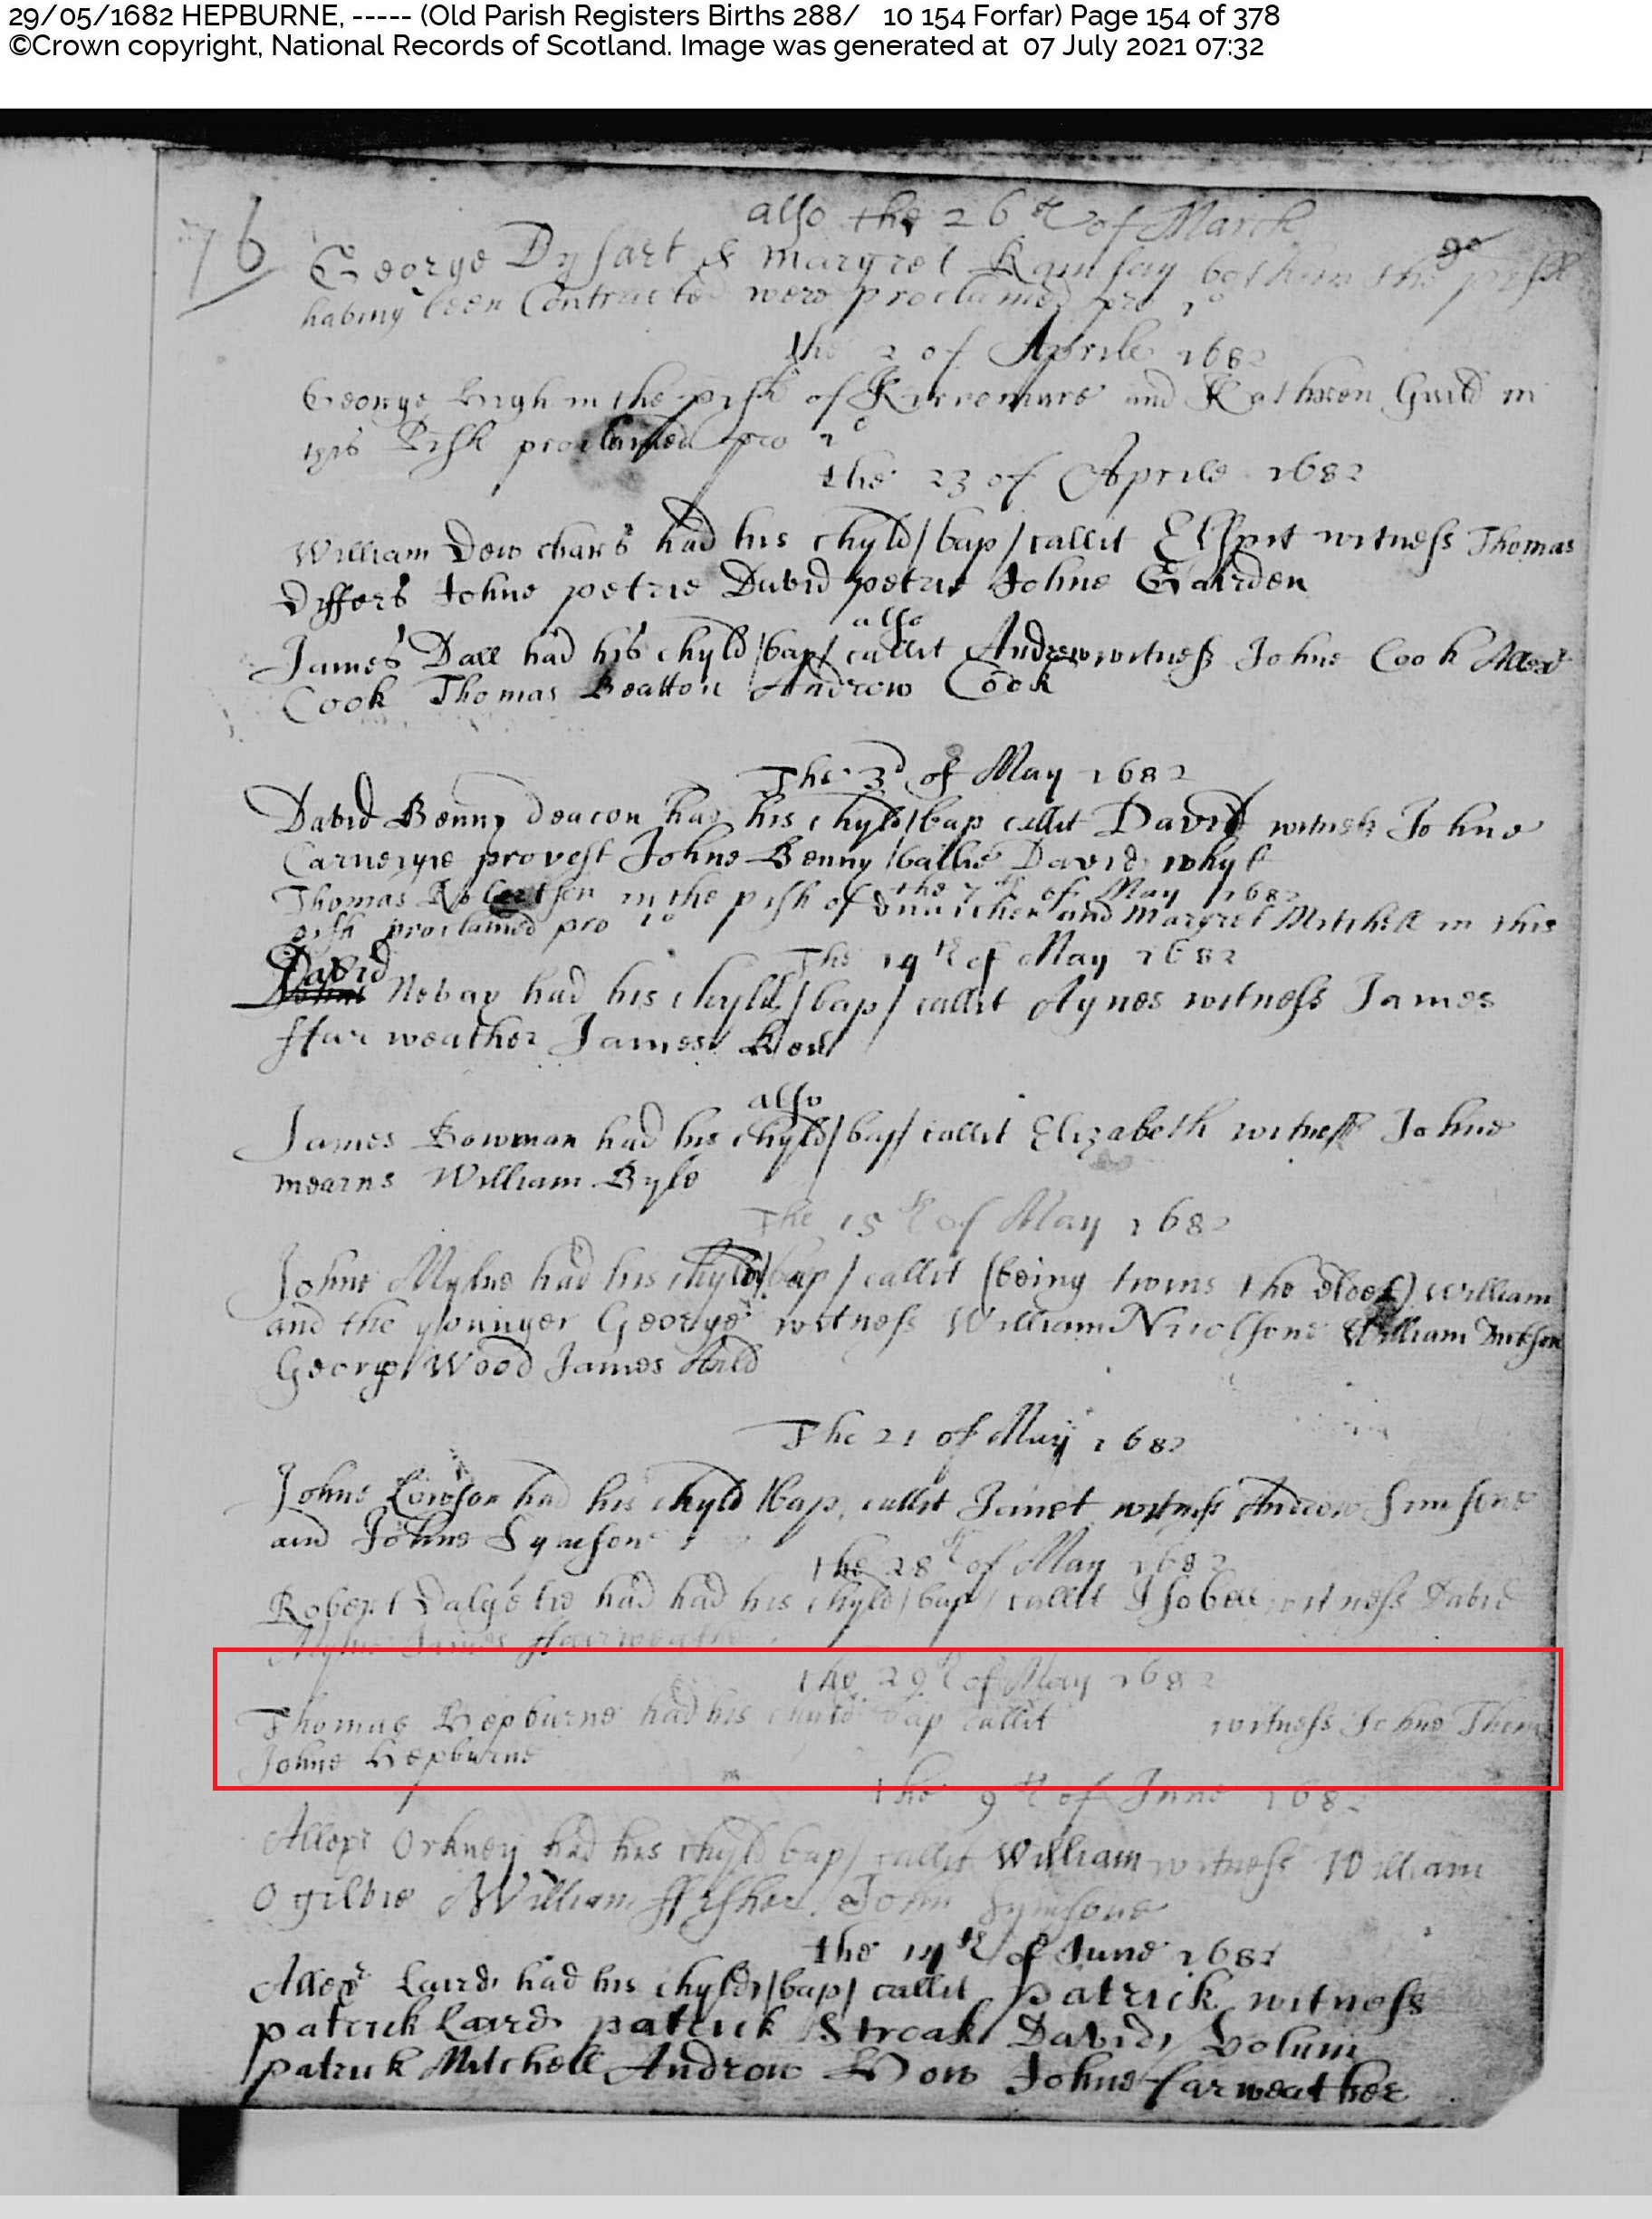 29/05/1682 HEPBURNE, ----- (Old Parish Registers Births 288/ 10 154 Forfar) Page 154 of 378
©Crown copyright, National Records of Scotland. Image was generated at 07 July 2021 07:32
76
also the 26th of March
George Dysart & Margret Ramsay both in the
habing been Contracted were proclamed pro 1o
the 2 of Aprile 1682
George in the pish of Kirremure and Kathren Guild in
this Pish proclamed pro
the 23 of Aprile 1682
William Dewchars had his chyld/bap/callit Elspit witness Thomas
Differs Johne petrie David petrie Johne Gairden
also
James Dall had his chyld/bap/callit Andrew witness Johne Cook Allexr
Cook Thomas Beatton Andrew Cook
The 3d of May 1682
David Benny deacon had his chyld/bap callit David witness Johne
Carnegye provest Johne Benny bailie David whyt
the 7th of May 1682
Thomas Robertsen in the pish of dunichen and Margret Mitchell in this
pish proclamed pro 1o
The 14th of May 1682
David
Nobay had his chyld/bap/callit Agnes witness James
ffarweather James
also
James Bowman had his chyld/bap/callit Elizabeth witness Johne
mearns William Byle
The 15th of May 1682
Johne Mylne had his chyld/bap/callit (being twins the eldest) William
and the younger George witness William Nicolsone William
George Wood James
The 21 of May 1682
Johne Lowson had his chyld bap callit Jeinet witness Andrew Simsone
and Johne Symson
The 28th of May 1682
Robert Dalgetie had had his chyld/bap/callit Isobell witness David
Mylne James ffairweather
The 29th of May 1682
Thomas Hepburne had his chyld bap callit witness Johne Thom
Johne Hepburne
The 9th of June 1682
Allexr Orkney had his chyld bap/callit William witness William
Ogilvie William ffisher John Symsone
the 14th of June 1682
Allexr Laird had his chyld/bap/callit patrick witness
patrick Laird patrick Stroak David
patrick Mitchell Andrew Dow Johne farweather